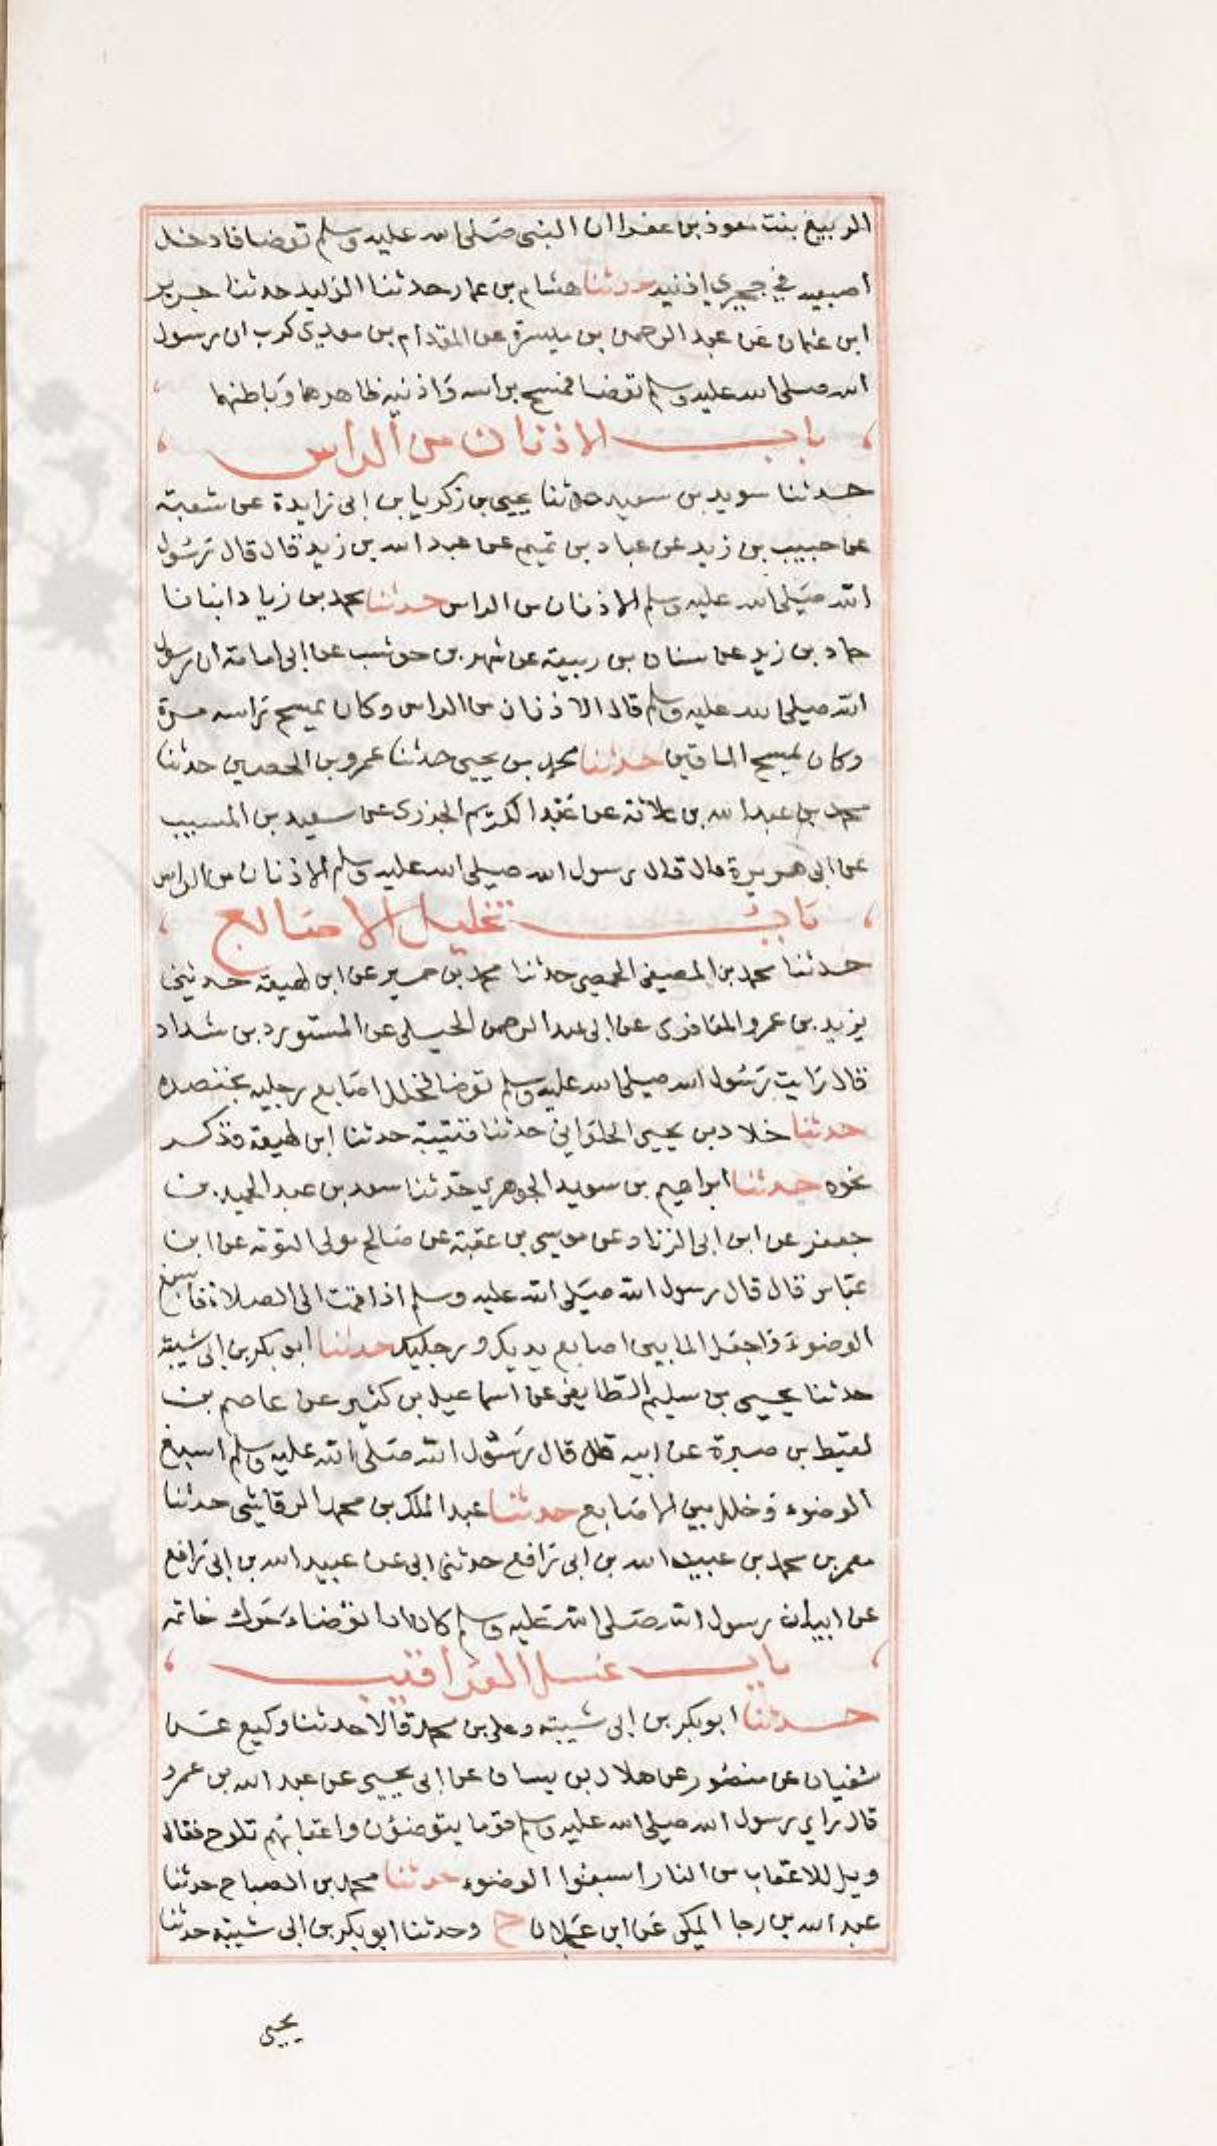 الربيع بنت معوذ بن عفرا ان النبى صلى الله عليه وسلم توضا فادخل
اصبعيه في جحري اذنيه حدثنا هشام بن عمار حدثنا الوليد حدثنا حريز
ابن عثمان عن عبد الرحمن بن ميسرة عن المقدام بن معدي كرب ان رسول
الله صلى الله عليه وسلم توضا فمسح براسه واذنيه ظاهرهما وباطنهما
باب الاذنان من الراس
حدثنا سويد بن سعيد حدثنا يحيى بن زكريا بن ابى زايدة عن شعبة
عن حبيب بن زيد عن عباد بن تميم عن عبد الله بن زيد قال قال رسول
الله صلى الله عليه وسلم الاذنان من الراس حدثنا محمد بن زياد انبانا
حماد بن زيد عن سنان بن ربيعة عن شهر بن حوشب عن ابى امامة ان رسول
الله صلى الله عليه وسلم قال الاذنان من الراس وكان يمسح راسه مرة
وكان يمسح الماقين حدثنا محمد بن يحيى حدثنا عمرو بن الحصين حدثنا
محمد بن عبد الله بن علاثة عن عبد الكريم الجزرى عن سعيد بن المسيب
عن ابى هريرة قال قال رسول الله صلى الله عليه وسلم الاذنان من الراس
باب تخليل الاصابع
حدثنا محمد بن المصفى الحمصي حدثنا محمد بن حمير عن ابن لهيعة حدثني
يزيد بن عمرو المعافرى عن ابى عبد الرحمن الحبلى عن المستورد بن شداد
قال رايت رسول الله صلى الله عليه وسلم توضا فخلل اصابع رجليه بخنصره
حدثنا خلاد بن يحيى الحلواني حدثنا قتيبة حدثنا ابن لهيعة فذكر
نحوه حدثنا ابراهيم بن سويد الجوهري حدثنا سعد بن عبد الحميد بن
جعفر عن ابن ابى الزناد عن موسى بن عقبة عن صالح مولى التوئة عن ابن
عباس قال قال رسول الله صلى الله عليه وسلم اذا قمت الى الصلاة فاسبغ
الوضوء واجعل الما بين اصابع يديك ورجليك حدثنا ابو بكر بن ابى شيبة
حدثنا يحيى بن سليم الطايفى عن اسماعيل بن كثير عن عاصم بن
لقيط بن صبرة عن ابيه قال قال رسول الله صلى الله عليه وسلم اسبغ
الوضوء وخلل بين الاصابع حدثنا عبد الملك بن محمد الرقاشي حدثنا
معمر بن محمد بن عبيد الله بن ابى رافع حدثنى ابى عن عبيد الله بن ابى رافع
عن ابيه ان رسول الله صلى الله عليه وسلم كان اذا توضاء حرك خاتمه
باب غسل العراقيب
حدثنا ابو بكر بن ابى شيبة وعلى بن محمد قالا حدثنا وكيع عن
سفيان عن منصور عن هلال بن يساف عن ابى يحيى عن عبد الله بن عمرو
قال راي رسول الله صلى الله عليه وسلم قوما يتوضئون واعقابهم تلوح فقال
ويل للاعقاب من النار اسبغوا الوضوء حدثنا محمد بن الصباح حدثنا
عبد الله بن رجا المكى عن ابن عجلان ح وحدثنا ابو بكر بن ابى شيبة حدثنا
يحيى